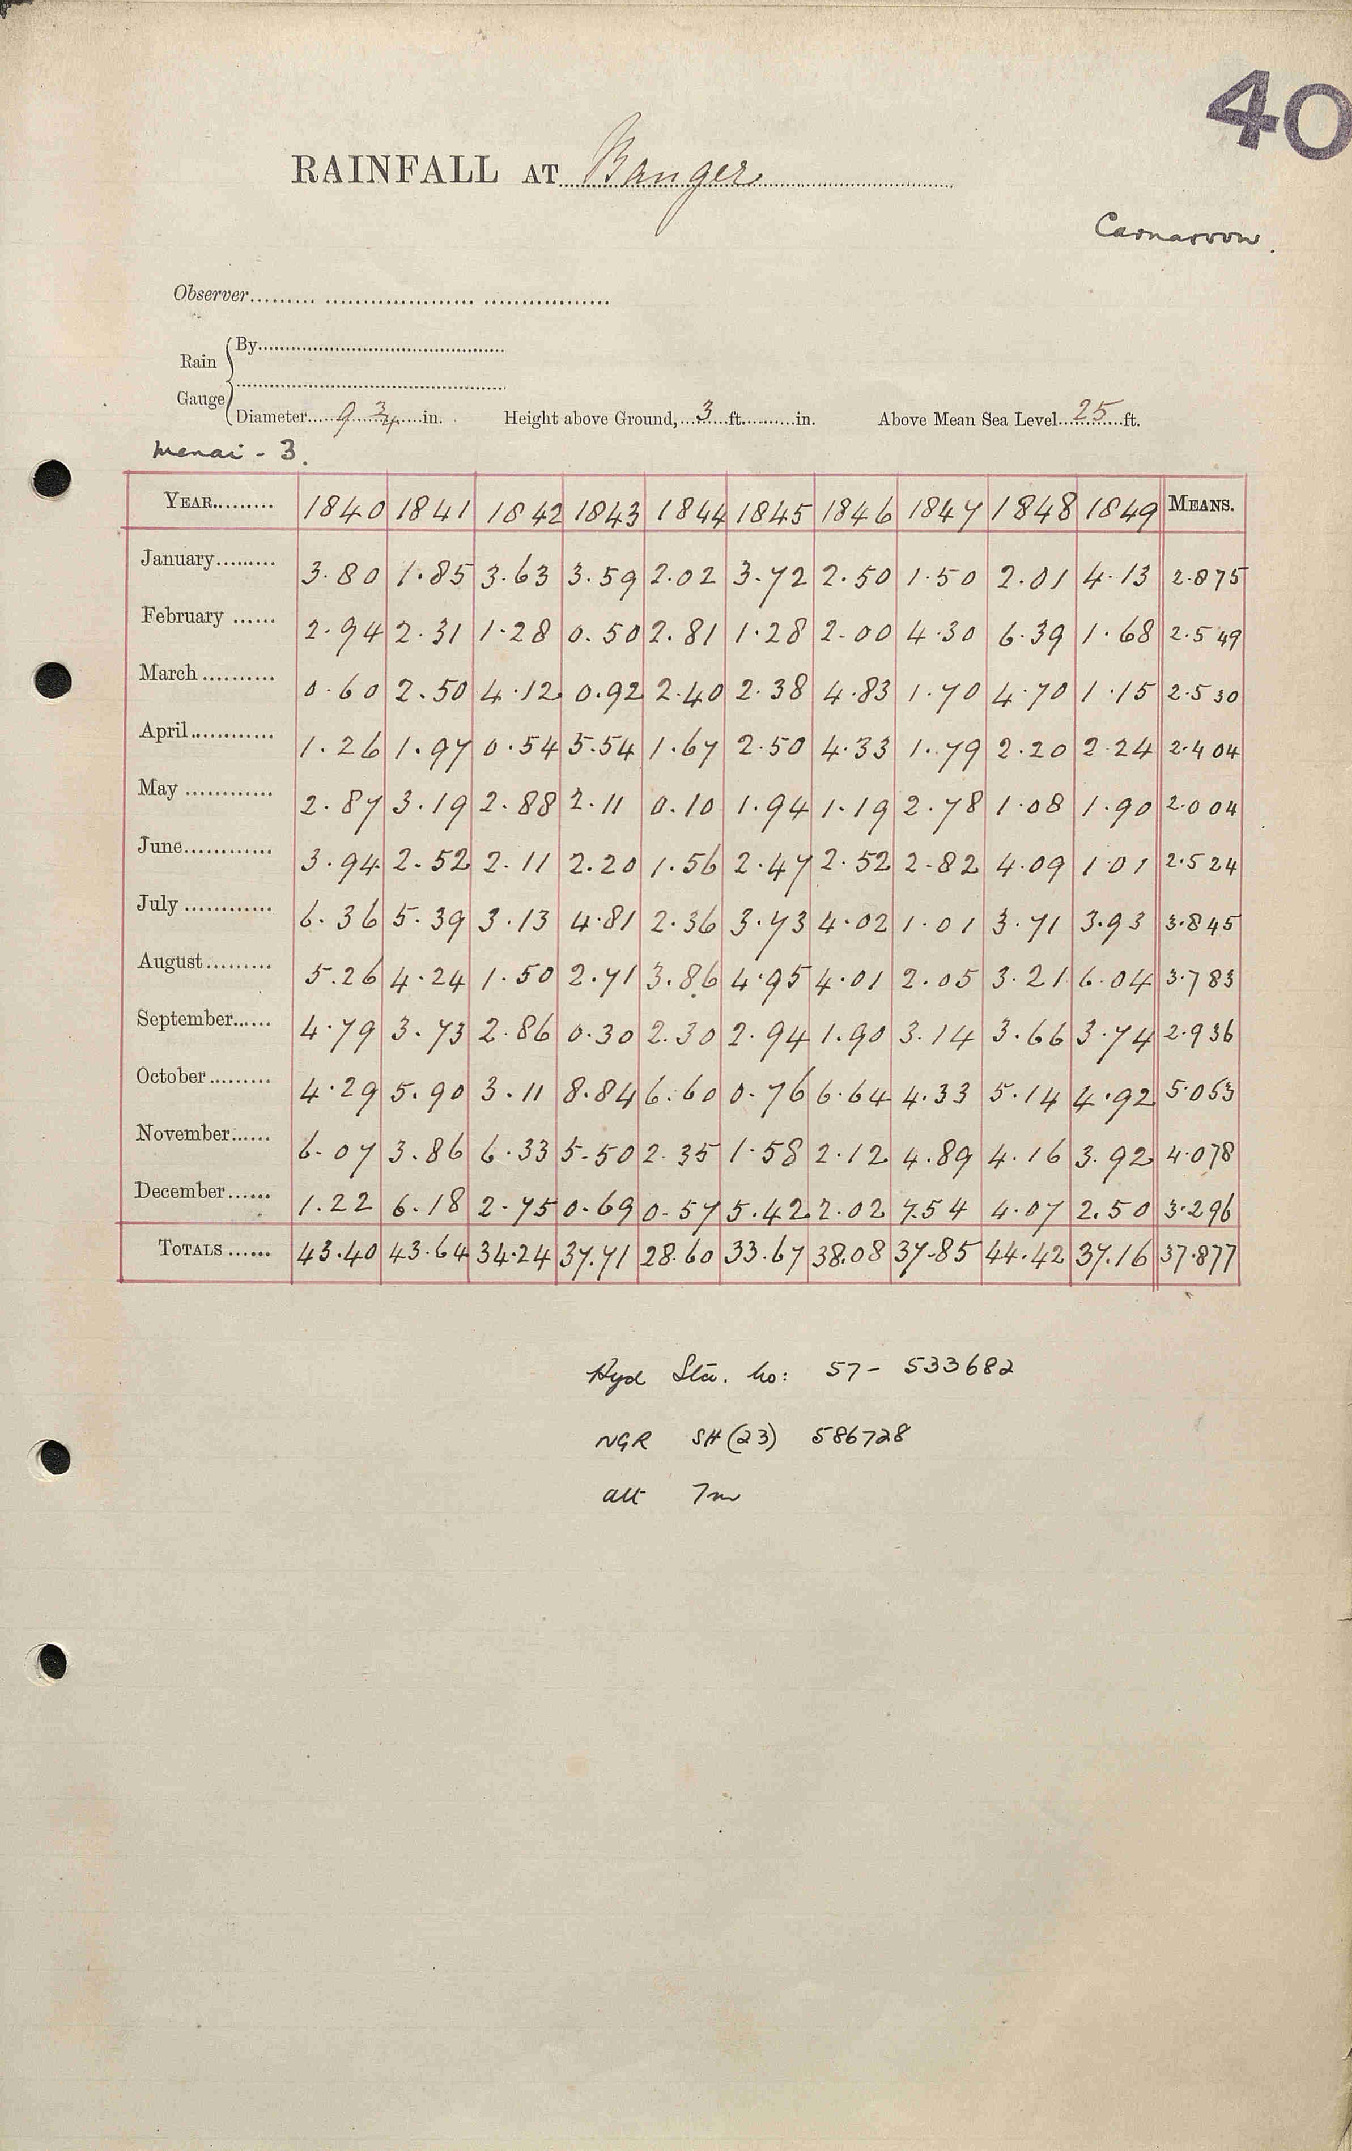 40
RAINFALL AT Banger
Carnarvon.
Observer
Rain Gauge { By
Diameter 9 3/4 in. Height above Ground, 3 ft. in. Above Mean Sea Level 25 ft.
Menai - 3.
YEAR 1840 1841 1842 1843 1844 1845 1846 1847 1848 1849 MEANS.
January 3.80 1.85 3.63 3.59 2.02 3.72 2.50 1.50 2.01 4.13 2.875
February 2.94 2.31 1.28 0.50 2.81 1.28 2.00 4.30 6.39 1.68 2.549
March 0.60 2.50 4.12 0.92 2.40 2.38 4.83 1.70 4.70 1.15 2.530
April 1.26 1.97 0.54 5.54 1.67 2.50 4.33 1.79 2.20 2.24 2.404
May 2.87 3.19 2.88 2.11 0.10 1.94 1.19 2.78 1.08 1.90 2.004
June 3.94 2.52 2.11 2.20 1.56 2.47 2.52 2.82 4.09 1.01 2.524
July 6.36 5.39 3.13 4.81 2.36 3.73 4.02 1.01 3.71 3.93 3.845
August 5.26 4.24 1.50 2.71 3.86 4.95 4.01 2.05 3.21 6.04 3.783
September 4.79 3.73 2.86 0.30 2.30 2.94 1.90 3.14 3.66 3.74 2.936
October 4.29 5.90 3.11 8.84 6.60 0.76 6.64 4.33 5.14 4.92 5.053
November 6.07 3.86 6.33 5.50 2.35 1.58 2.12 4.89 4.16 3.92 4.078
December 1.22 6.18 2.75 0.69 0.57 5.42 2.02 7.54 4.07 2.50 3.296
TOTALS 43.40 43.64 34.24 37.71 28.60 33.67 38.08 37.85 44.42 37.16 37.877
Hyd Sta. No: 57 - 533682
NGR SH (23) 586728
alt 7m